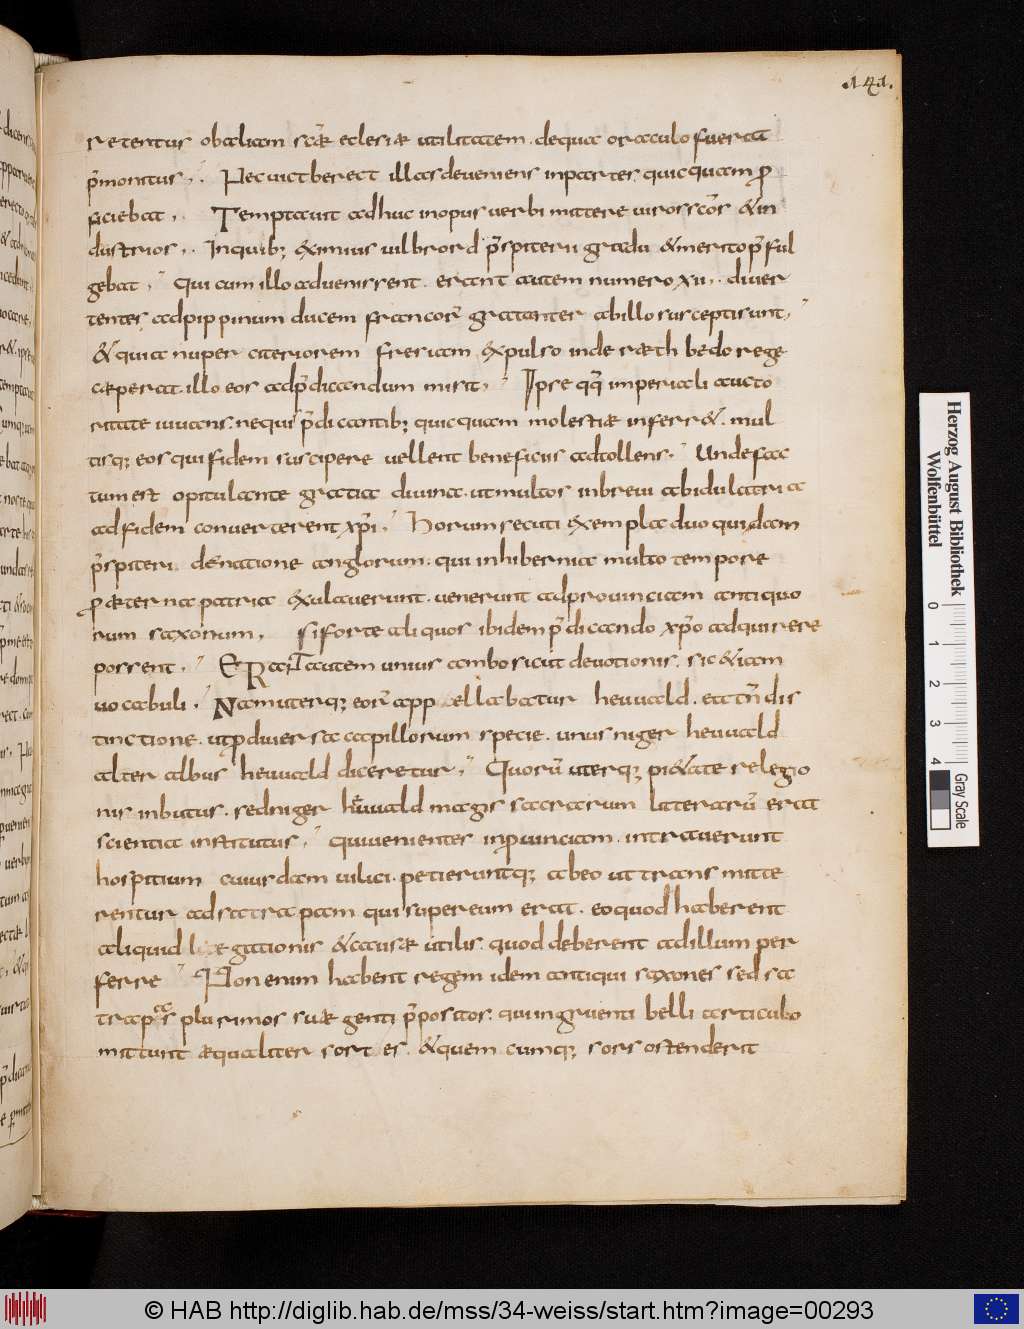 .141.
retentus obaliam scæ eclesiæ utilitatem. dequa oraculo fuerat
p̄monitus,. Nec uictberect illasdeueniens inpartes quicquam p
ficiebat,. Temptauit adhuc inopus uerbi mittere uirosscōs &in
dustrios,. Inquib; eximius uilbrord p̄spiterii gradu &merito p̄ful
gebat,' Qui cum illo aduenissent. erant autem numero xii,. diuer
tentes adpippinum ducem francor̄ gratanter abillo susceptisunt,'
&quia nuper citeriorem fresiam expulso inde ræth bedo rege
cæperat. illo eos adp̄dicandum misit,' Ipse qq̄ imperiali aucto
ritate iuuans. nequi p̄dicantib; quicquam molestiæ inferr&. mul
tisq; eos quifidem suscipere uellent beneficiis adtollens.' Undefac
tumest opitulante gratia diuina. utmultos inbreui abidulatria
adfidem conuerterent xp̄i,' Horum secuti exempla duo quidam
p̄spiteri. denatione anglorum. qui inhibernia multo tempore
p æterna patria exulauerunt. uenerunt adprouinciam antiquo
rum saxonum, siforte aliquos ibidem p̄dicando xp̄o adquirere
possent,' ERanT autem unius ambo sicut deuotionis. sic &iam
uocabuli,' Namuterq; eor̄ app ellabatur heuuald. ea tn̄ dis
tinctione. utp diuersa capillorum specie. unus niger heuuald
alter albus heuuald diceretur,' Quorū uterq; pi&ate relegio
nis inbutus. sedniger heuuald magis sacrarum litterarū erat
scientia institutus,' quiuenientes inpuinciam. intrauerunt
hospitium cuiusdam uilici. petieruntq; abeo ut trans mitte
rentur adsatrapam qui supereum erat. eoquod haberent
aliquid legationis &causæ utilis. quod deberent adillum per
ferre ' Non enim habent regem idem antiqui saxones sed sa
trapas plurimos suæ genti p̄positos. quiingruenti belli articulo
mittunt æqualiter sortes. &quem cumq; sors ostenderit
Herzog August Bibliothek
Wolfenbüttel
0 1 2 3 4
Gray Scale
© HAB http://diglib.hab.de/mss/34-weiss/start.htm?image=00293